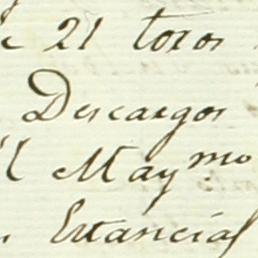 e 21 toros
Descargos
l May.mo
Estancias